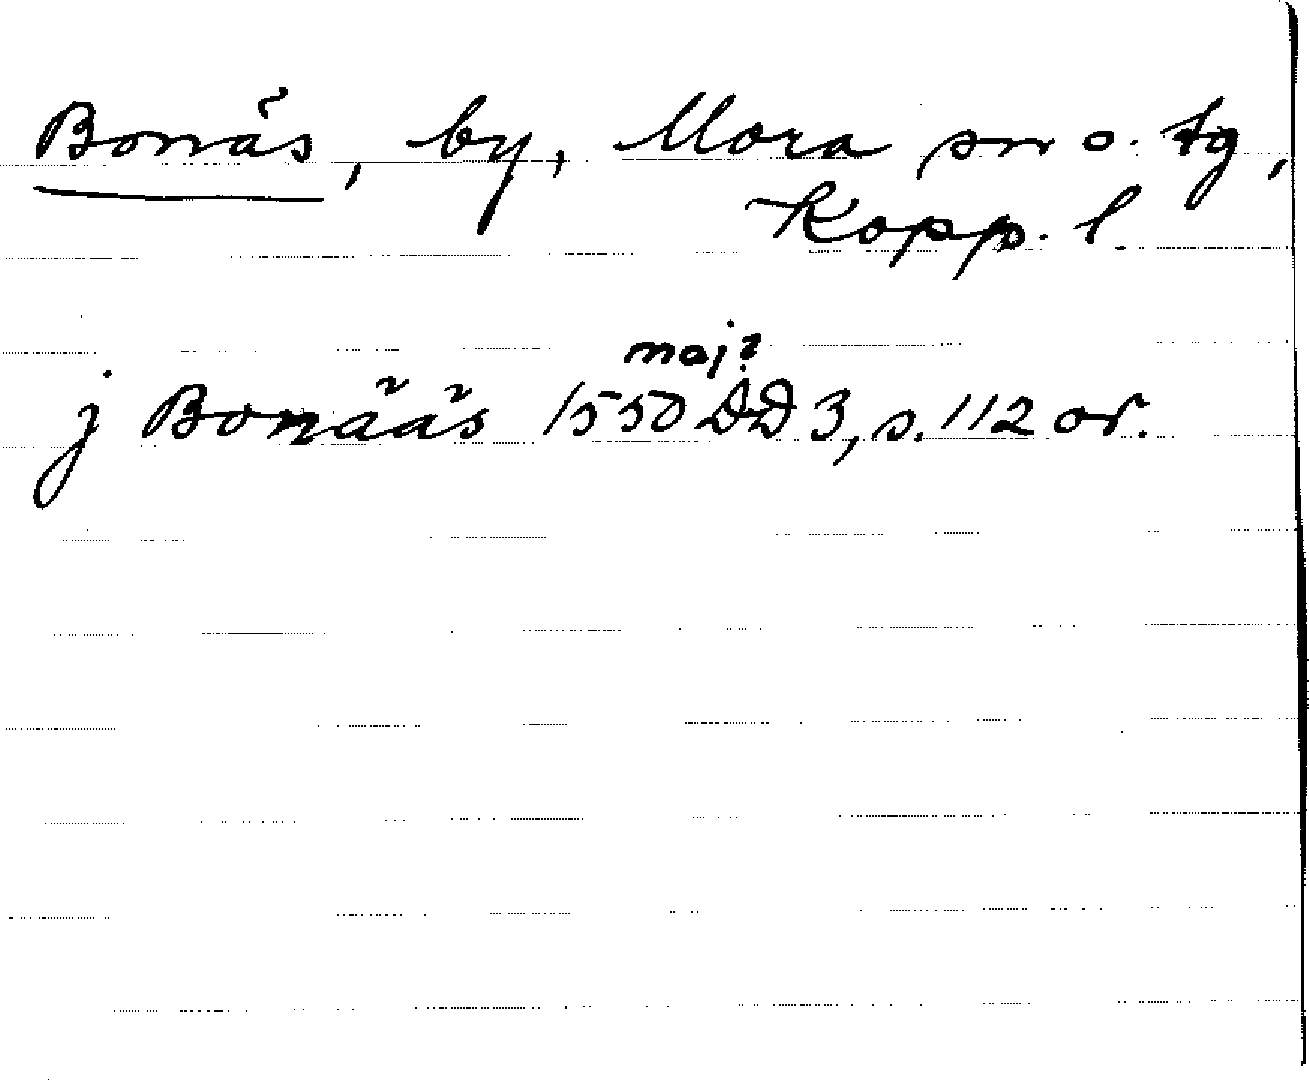 Bonäs, by, Mora sn o. tg,
Kopp. l.
maj?
j Bonääs 1550 DD 3, s. 112 or.